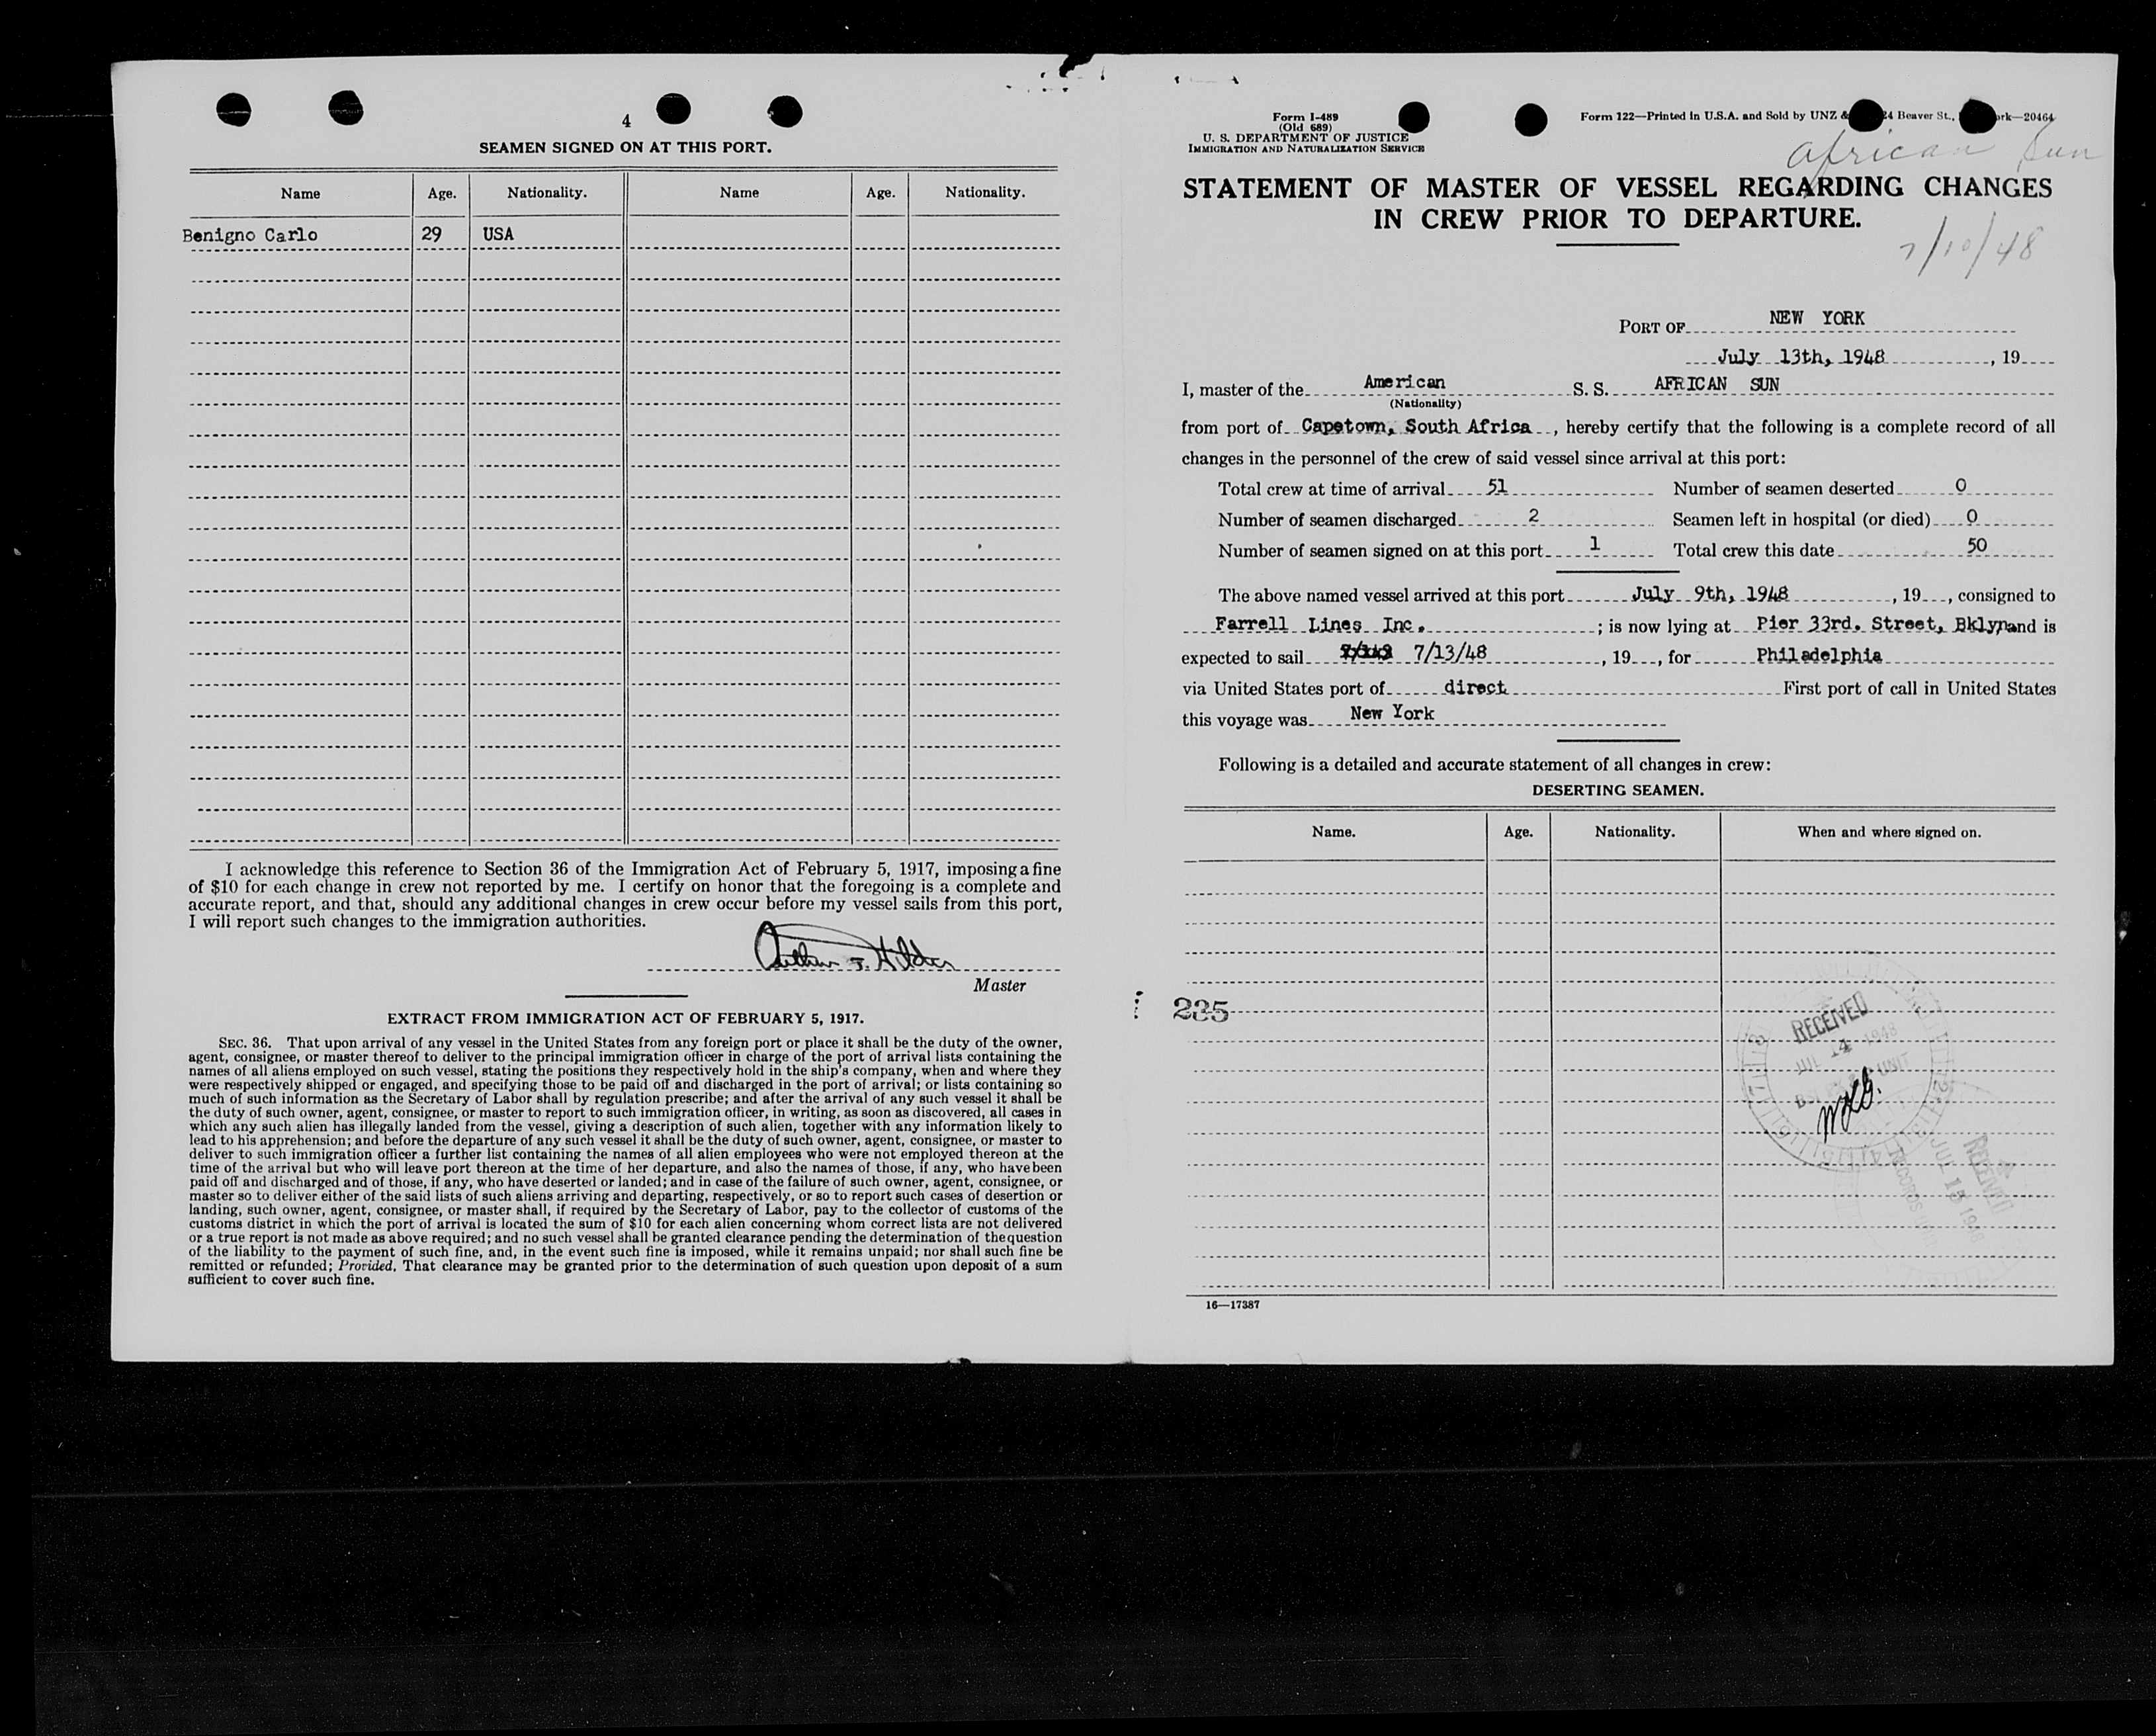 4
SEAMEN SIGNED ON AT THIS PORT.
Name Age. Nationality. Name Age. Nationality.
Benigno Carlo 29 USA
I acknowledge this reference to Section 36 of the Immigration Act of February 5, 1917, imposing a fine
of $10 for each change in crew not reported by me. I certify on honor that the foregoing is a complete and
accurate report, and that, should any additional changes in crew occur before my vessel sails from this port,
I will report such changes to the immigration authorities.
Master
EXTRACT FROM IMMIGRATION ACT OF FEBRUARY 5, 1917.
SEC. 36. That upon arrival of any vessel in the United States from any foreign port or place it shall be the duty of the owner,
agent, consignee, or master thereof to deliver to the principal immigration officer in charge of the port of arrival lists containing the
names of all aliens employed on such vessel, stating the positions they respectively hold in the ship's company, when and where they
were respectively shipped or engaged, and specifying those to be paid off and discharged in the port of arrival; or lists containing so
much of such information as the Secretary of Labor shall by regulation prescribe; and after the arrival of any such vessel it shall be
the duty of such owner, agent, consignee, or master to report to such immigration officer, in writing, as soon as discovered, all cases in
which any such alien has illegally landed from the vessel, giving a description of such alien, together with any information likely to
lead to his apprehension; and before the departure of any such vessel it shall be the duty of such owner, agent, consignee, or master to
deliver to such immigration officer a further list containing the names of all alien employees who were not employed thereon at the
time of the arrival but who will leave port thereon at the time of her departure, and also the names of those, if any, who have been
paid off and discharged and of those, if any, who have deserted or landed; and in case of the failure of such owner, agent, consignee, or
master so to deliver either of the said lists of such aliens arriving and departing, respectively, or so to report such cases of desertion or
landing, such owner, agent, consignee, or master shall, if required by the Secretary of Labor, pay to the collector of customs of the
customs district in which the port of arrival is located the sum of $10 for each alien concerning whom correct lists are not delivered
or a true report is not made as above required; and no such vessel shall be granted clearance pending the determination of the question
of the liability to the payment of such fine, and, in the event such fine is imposed, while it remains unpaid; nor shall such fine be
remitted or refunded; Provided, That clearance may be granted prior to the determination of such question upon deposit of a sum
sufficient to cover such fine.
Form I-489
(Old 689)
U. S. DEPARTMENT OF JUSTICE
IMMIGRATION AND NATURALIZATION SERVICE
Form 122—Printed in U.S.A. and Sold by UNZ & 24 Beaver St., ork—20464
African Sun
STATEMENT OF MASTER OF VESSEL REGARDING CHANGES
IN CREW PRIOR TO DEPARTURE.
7/10/48
PORT OF NEW YORK
July 13th, 1948, 19
I, master of the American S. S. AFRICAN SUN
(Nationality)
from port of Capetown, South Africa, hereby certify that the following is a complete record of all
changes in the personnel of the crew of said vessel since arrival at this port:
Total crew at time of arrival 51 Number of seamen deserted 0
Number of seamen discharged 2 Seamen left in hospital (or died) 0
Number of seamen signed on at this port 1 Total crew this date 50
The above named vessel arrived at this port July 9th, 1948, 19, consigned to
Farrell Lines Inc. ; is now lying at Pier 33rd. Street, Bklyn and is
expected to sail 7/13/48, 19, for Philadelphia
via United States port of direct First port of call in United States
this voyage was New York
Following is a detailed and accurate statement of all changes in crew:
DESERTING SEAMEN.
Name. Age. Nationality. When and where signed on.
235
RECEIVED
JUL 14 1948
UNIT
RECEIVED
JUL 15 194
RECORDS
16—17387